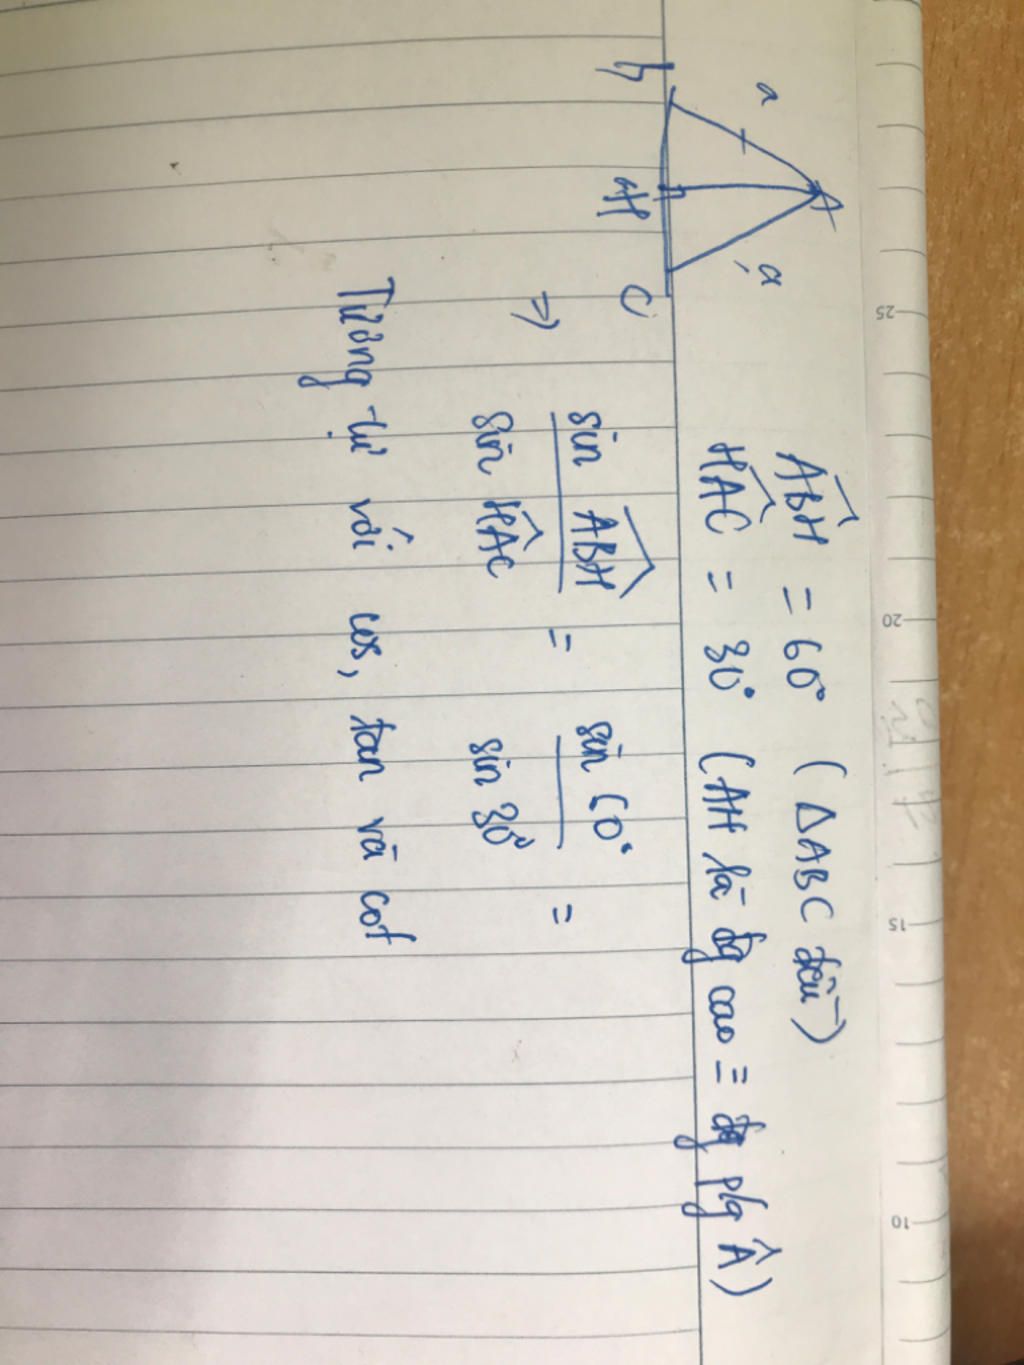 A
a
a
B
H
C
ABH = 60° (ΔABC đều)
HAC = 30° (AH là đg cao = đg p/g Â)
⇒ sin ABH / sin HAC = sin 60° / sin 30° =
Tương tự với cos, tan và cot
25
20
15
10